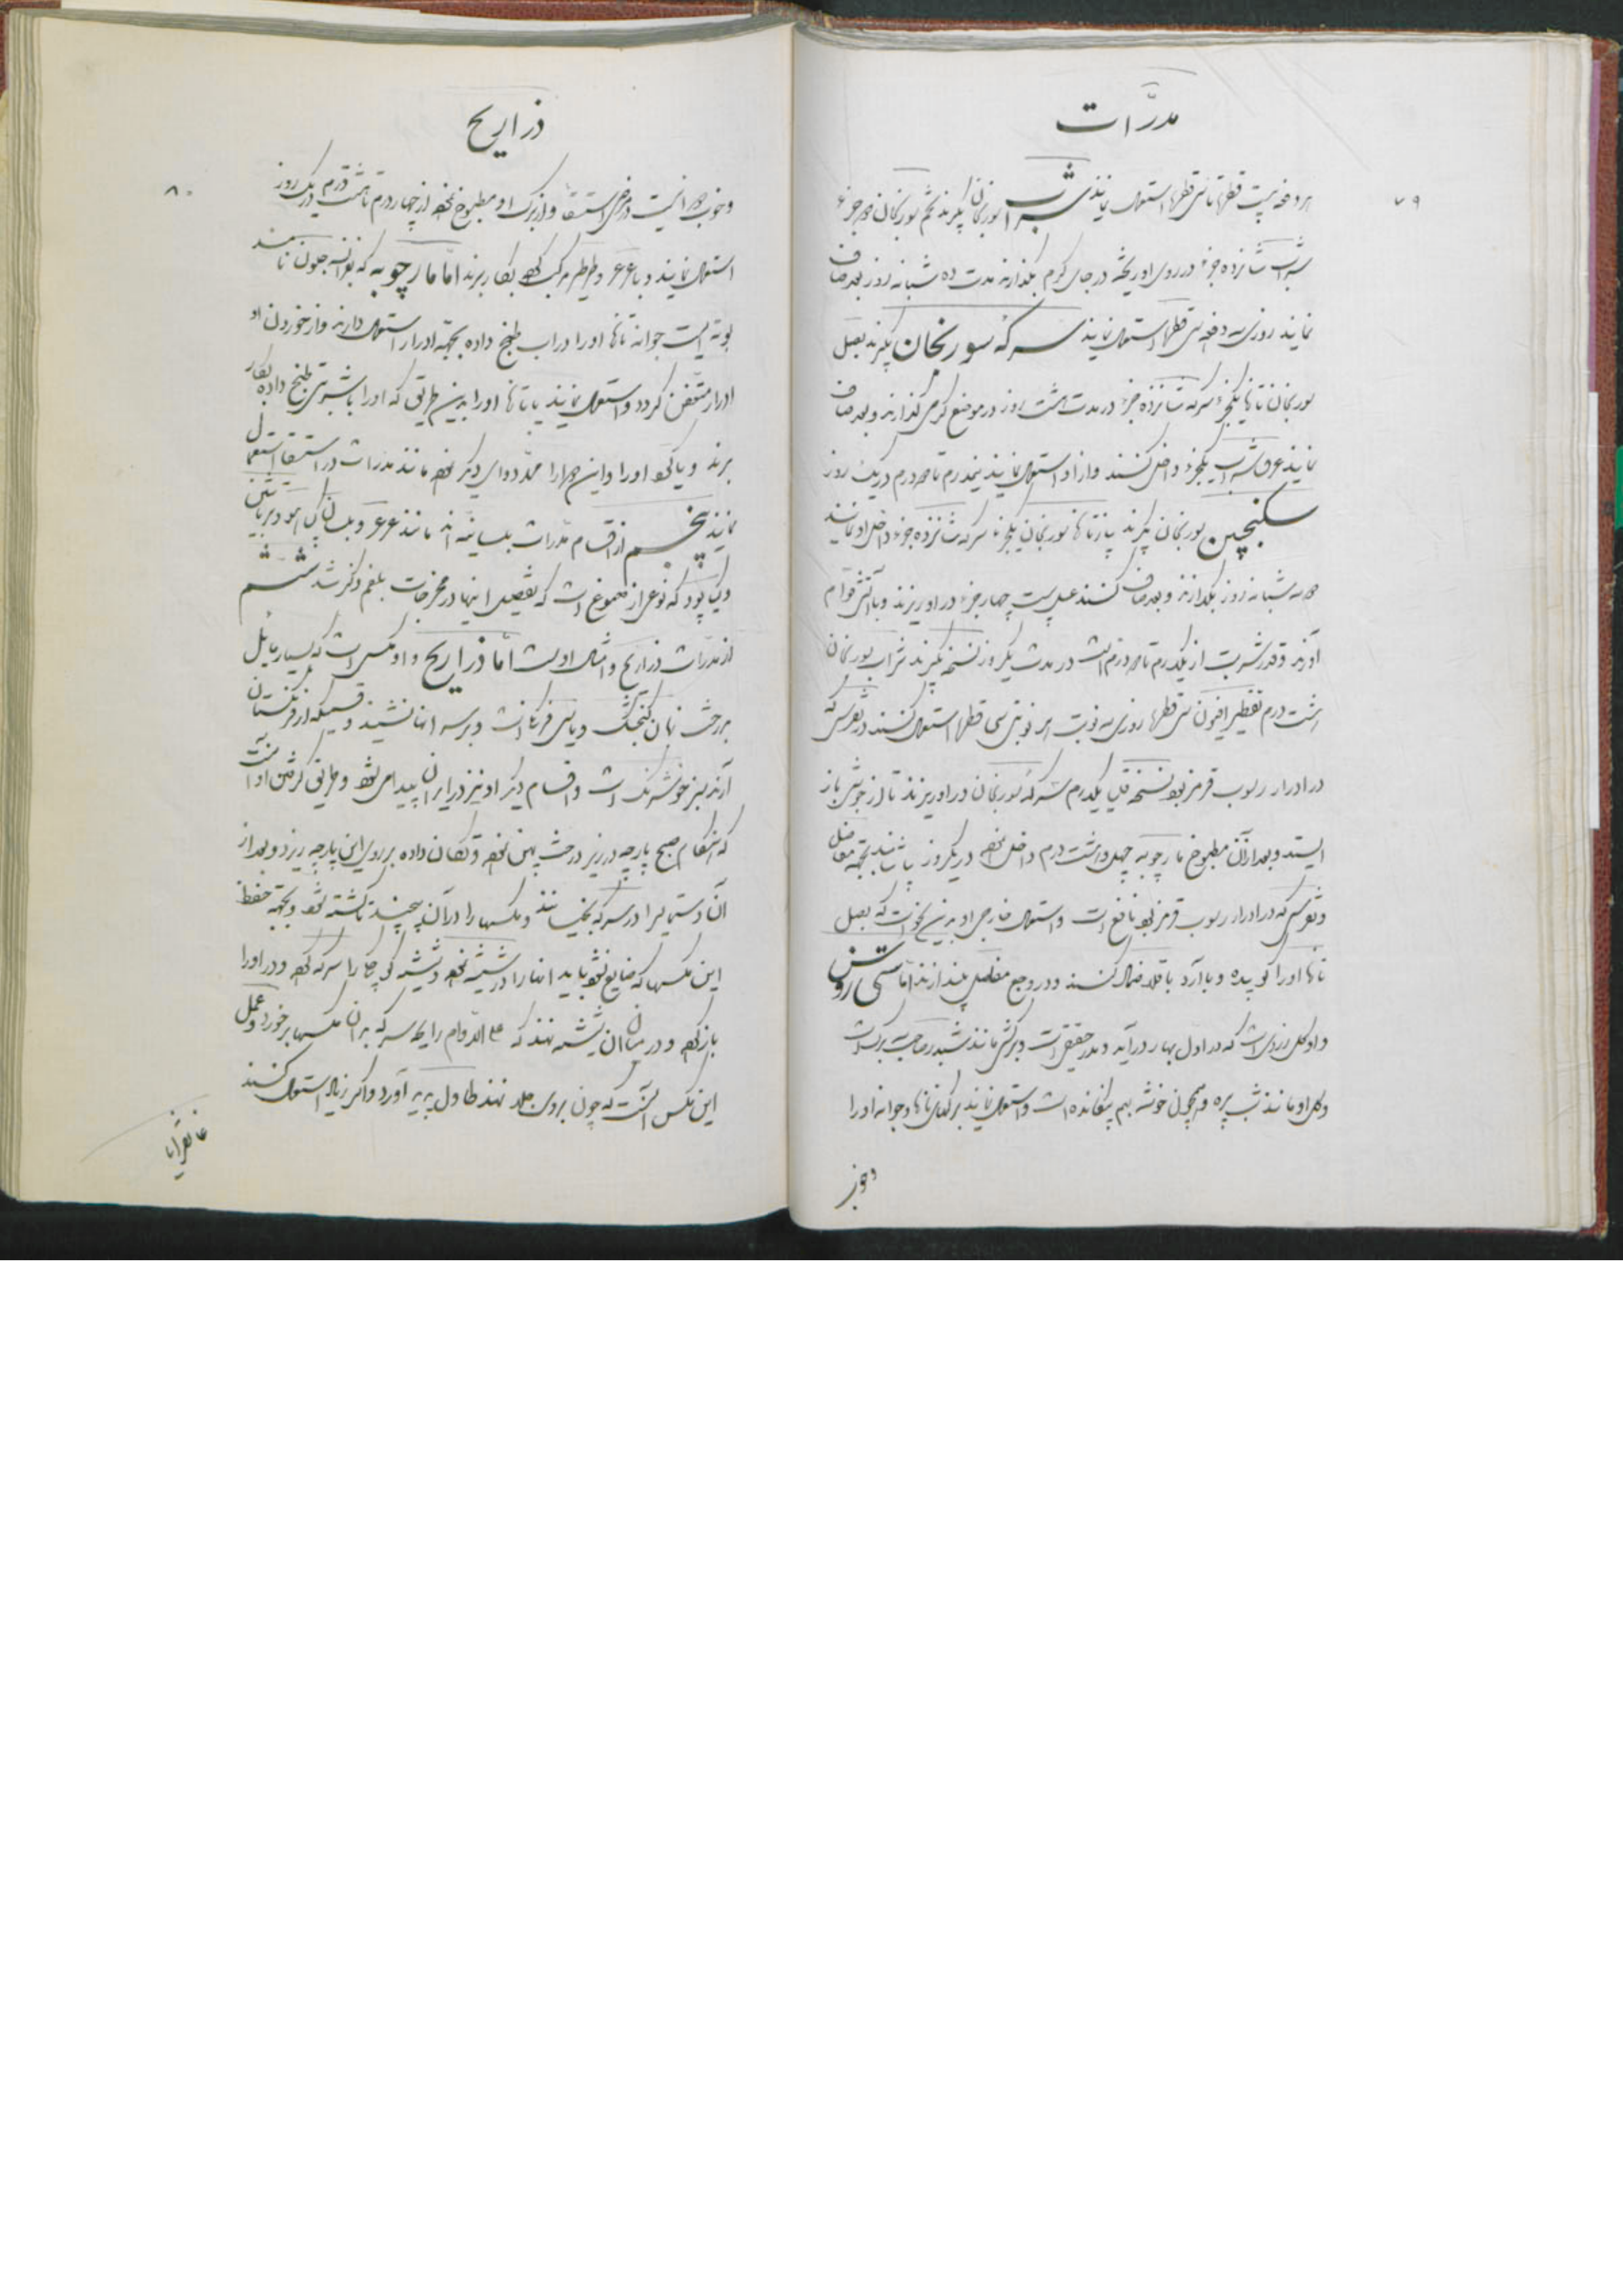 ۷۹
مدرّات
هر دفعه بیست قطره تا سی قطره استعمال نمایند شراب سورنجان بگیرند تخم سورنجان دو جزء
شراب شانزده جزء در روی او ریخته در جای گرم بگذارند مدت ده شبانه روز بعد صاف
نمایند روزی سه دفعه سی قطره استعمال نمایند سرکه سورنجان بگیرند بصل
سورنجان تازه یکجزء سرکه شانزده جزء در مدت هشت روز در موضع گرمی گذارند و بعد صاف
نمایند عرق شراب یکجزء داخل کنند و از او استعمال نمایند نیمدرم تا دو درم در یک روز
سکنجبین سورنجان بگیرند پیاز تازه سورنجان یکجزء سرکه شانزده جزء داخل او نمایند
دو سه شبانه روز بگذارند و بعد صاف کنند عسل بیست چهار جزء در او ریزند و با آتش قوام
آورند و قدر شربت از یکدرم تا دو درم است در مدت یکروز نسخه بگیرند شراب سورنجان
هشت درم تقطیر افیون سی قطره روزی سه نوبت هر نوبتی سی قطره استعمال کنند در نقرس که
در ادرار رسوب قرمز بود نسخه قلی یکدرم سرکه سورنجان در او ریزند تا از جوش باز
ایستد و بعد از آن مطبوخ مارچوبه چهل و هشت درم داخل نموده در یکروز بیاشامند بجهة مفاصل
و نقرس که در ادرار رسوب قرمز بود نافع است و استعمال خارجی او بدین نحو است که بصل
تازه او را کوبیده و با آرد باقلا ضماد کنند و در وجع مفاصل بیندازند امّا
و او گل زردی است که در اول بهار درآید و مدر حقیقی است و برگش مانند شبدر صاحب سه برگ است
و گل او مانند شب پره و همچون خوشه بهم چسبانده است و استعمال نمایند برگهای تازه و جوانه او را
و خوب
۸۰
ذراریح
و خوب مدرّ است در مرض استسقا و از برگ او مطبوخ نموده از چهار درم تا هشت درم در یک روز
استعمال نمایند و با عرعر و طرطر مرکب کرده بکار برند امّا مارچوبه که بفرانسه نامند
بوته ایست جوانه تازه او را در آب طبخ داده بجهة ادرار استعمال دارند و از خوردن او
ادرار متعفن گردد و استعمال نمایند یا تازه او را بدین طریق که او را با شربتی طبخ داده بکار
برند و یا کوبیده او را و این دوا را ممد دوای دیگر نموده مانند مدرات در استسقا استعمال
نمایند پنجم از اقسام مدّرات بلسانیه اند مانند عرعر و بلسان
که نوعی از صموغ است که تفصیل اینها در مخرجات بلغم ذکر شد ششم
از مدّرات ذراریح و امثال اوست امّا ذراریح و او مگسی است که بسیار مایل
بدرخت زبان گنجشک و یاس فرنگی است و بر سر آنها نشیند و قسمیکه از فرنگستان
آرند سبز خوشرنگ است و اقسام دیگر او نیز در ایران پیدا میشود و طریق گرفتن او آنست
که هنگام صبح پارچه در زیر درخت پهن نموده و تکان داده بر روی این پارچه ریزد و بعد از
آن دستمالرا در سرکه بخیسانند و مگسها را در آن پیچند تا کشته شود و بجهة حفظ
این مگسها که ضایع نشود باید آنها را در شیشه نموده و شیشه کوچکی را سرکه کرده و در او را
باز کرده و در میان آن شیشه نهند که علی الدوام رایحه سرکه بر آن مگسها برخورد و عمل
این مگس آنست که چون بروی جلد نهند تاول پدید آورد و اگر زیاد استعمال کنند